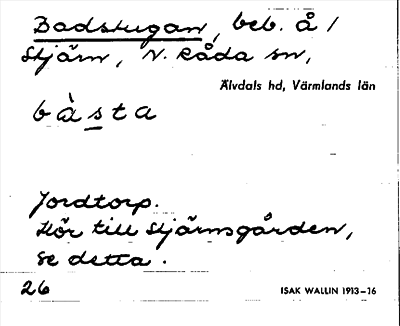 Badstugan, beb. å /
Stjärn, N. Råda sn,
Älvdals hd, Värmlands län
bàsta
Jordtorp.
Hör till Stjärnsgården,
se detta.
26 ISAK WALLIN 1913–16